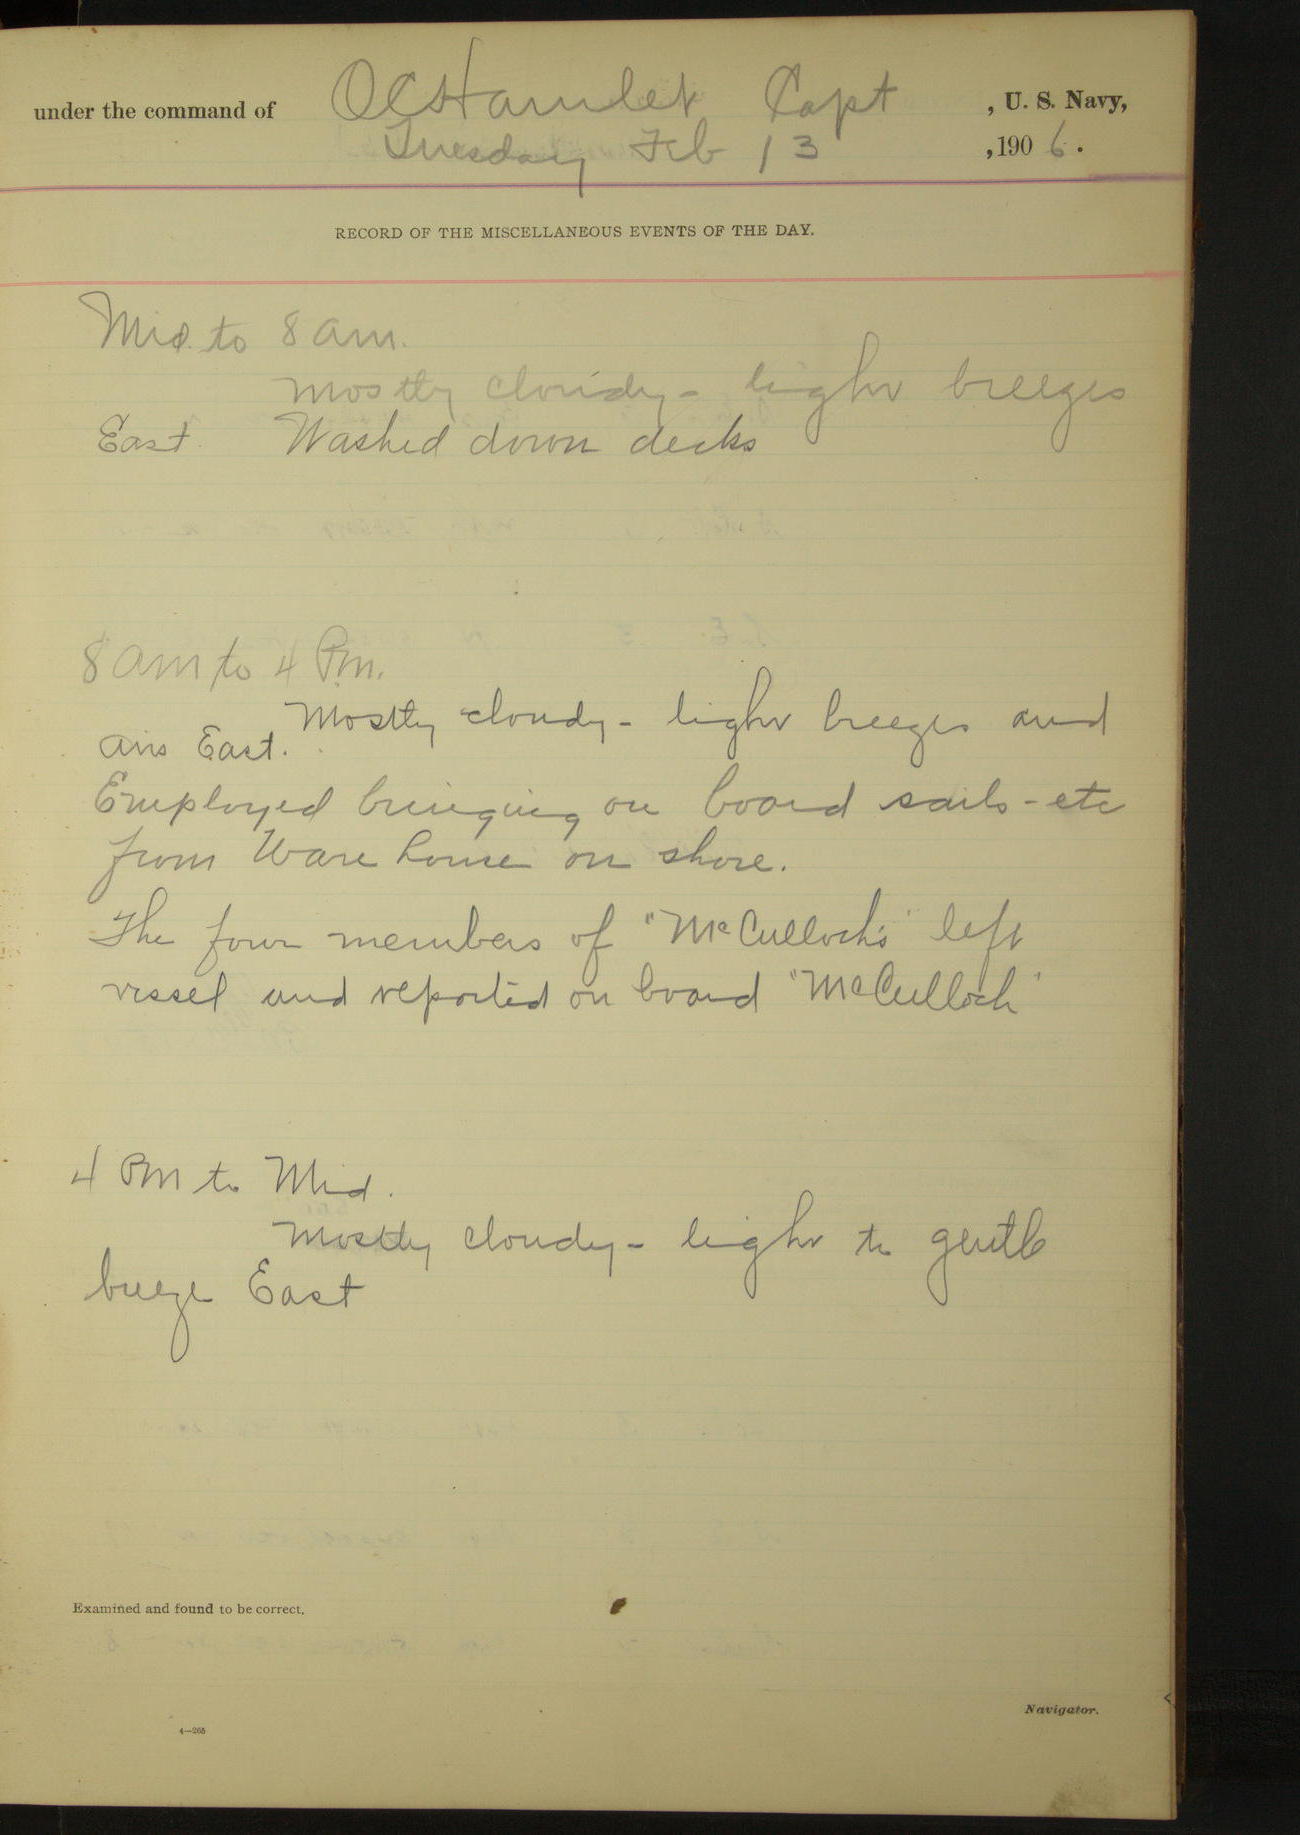 under the command of O C Hamlet Capt , U. S. Navy,
Tuesday Feb 13 , 190 6 .
RECORD OF THE MISCELLANEOUS EVENTS OF THE DAY.
Mid. to 8 am.
Mostly cloudy - light breezes
East. Washed down decks
8 am to 4 Pm.
Mostly cloudy - light breezes and
airs East.
Employed bringing on board sails - etc
from Ware house on shore.
The four members of "McCulloch's" left
vessel and reported on board "McCulloch"
4 PM to Mid.
Mostly cloudy - light to gentle
breeze East
Examined and found to be correct.
Navigator.
4—265